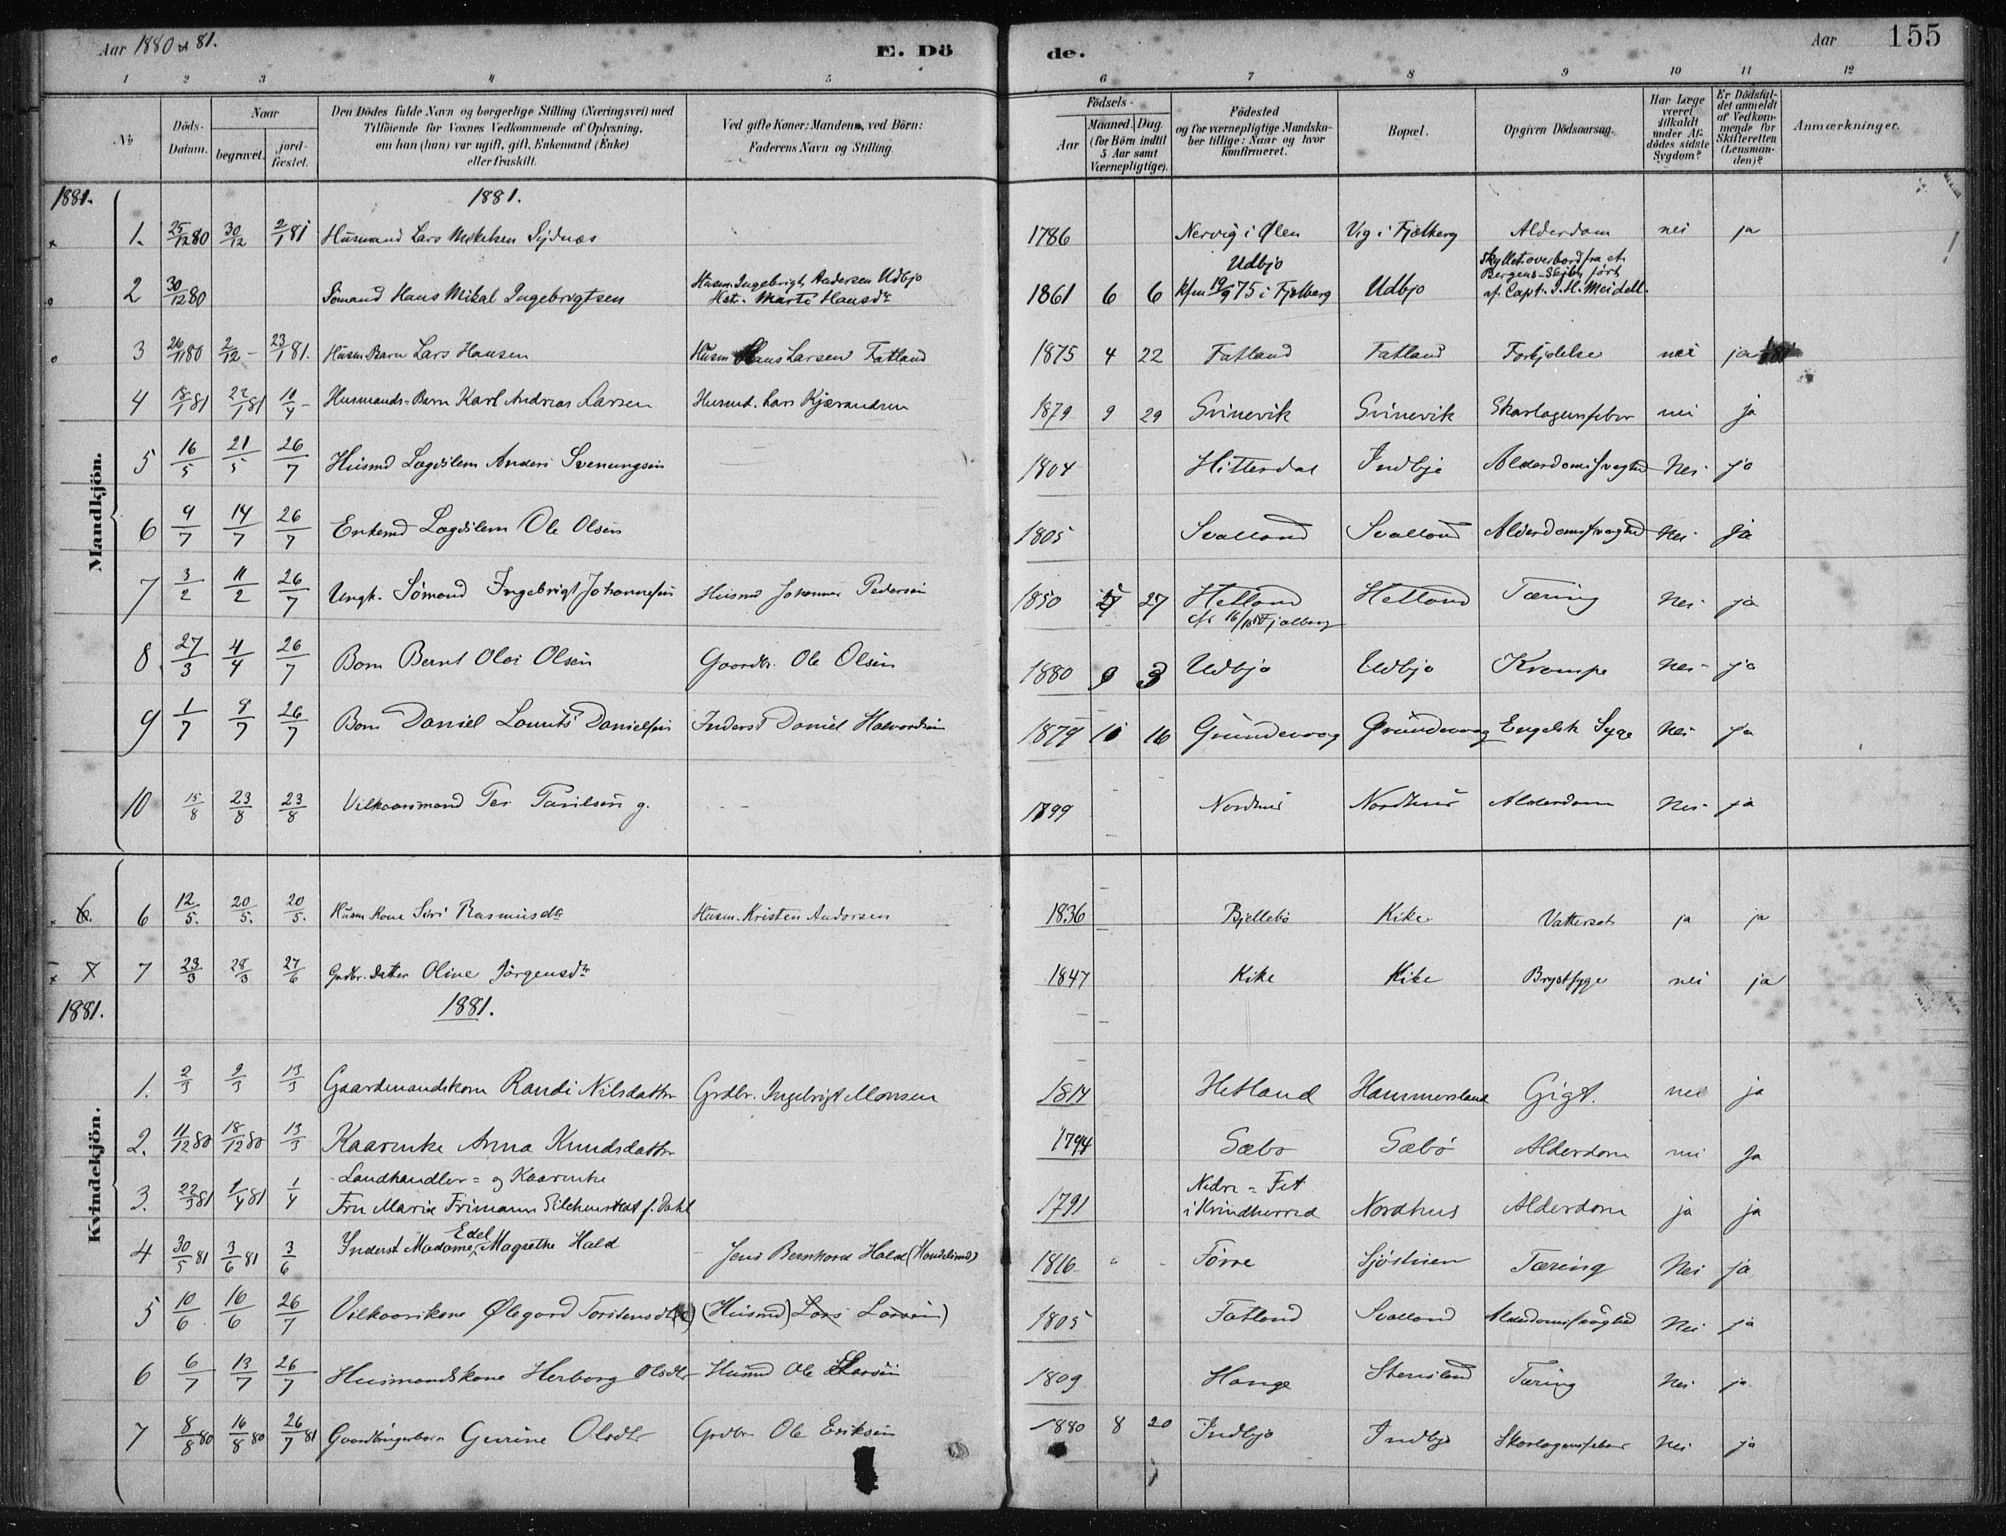 Aar 1880 & 81. E. Dö de. Aar 155
1 2 3 4 5 6 7 8 9 10 11 12
No.
Döds-Datum.
Naar
begravet.
jord-fæstet.
Den Dödes fulde Navn og borgerlige Stilling (Næringsvei) med
Tilföiende for Voxnes Vedkommende af Oplysning,
om han (hun) var ugift, gift, Enkemand (Enke)
eller fraskilt.
Ved gifte Koner: Mandens, ved Börn:
Faderens Navn og Stilling.
Födsels-
Aar
Maaned. Dag
(for Börn indtil
5 Aar samt
Værnepligtige).
Födested
og for værnepligtige Mandska-
ber tillige: Naar og hvor
konfirmeret.
Bopæl.
Opgiven Dödsaarsag.
Har Læge
været
tilkaldt
under Af-
dödes sidste
Sygdom?
Er Dödsfal-
det anmeldt
af Vedkom-
mende for
Skifteretten
(Lensman-
den)?
Anmærkninger.
1881. 1881.
Mandkjön.
1. 25/12 80 30/12 2/1 81 Husmand Lars Mikelsen Sydnæs 1786 Nervig i Ølen Vig i Fjælberg Alderdom nei ja
2 30/12 80 Sömand Hans Mikal Ingebrigtsen Husm. Ingebrigt Andersen Udbjo
Hst. Marte Hansdr 1861 6 6 Udbjo
kfm 19/9 75 i Fjelberg Udbjo Skyllet overbord fra et
Bergens-Skib, fört
af Capt. J. H. Meidell.
3 26/11 80 2/12 - 23/1 81. Husm. Barn Lars Hansen Husm Hans Larsen Fatland 1875 4 22 Fatland Fatland Forkjølelse nei ja
4 18/1 81 22/1 81 10/4 - Husmands-Barn Karl Andreas Larsen Husmd. Lars Kjærandsen 1879 9 29 Svinevik Svinevik Skarlagensfeber nei ja
5 16/5 21/5 26/7 Husmd Lægdslem Anders Svenungsen 1804 Hitterdal Indbjo Alderdomssvaghed Nei ja
6 9/7 14/7 26/7 Enkemd Lægdslem Ole Olsen 1805 Svalland Svalland Alderdomssvaghed Nei Ja
7 3/2 11/2 26/7 Ungk. Sømand Ingebrigt Johannessen Husmd Johannes Pedersen 1850 27 Helland Helland Tæring Nei ja
8 27/3 4/4 26/7 Barn Bernt Olai Olsen Gaardbr. Ole Olsen 1880 9 3 Udbjo Udbjo Krampe Nei ja
9 1/7 9/7 26/7 Barn Daniel Lauritz Danielsen Inderst Daniel Halvordsen 1879 10 16 Grundevaag Grundevaag Engelsk Syge Nei Ja
10 15/8 23/8 23/8 Vilkaarsmand g. 1799 Nordhus Nordhus Alderdom Nei ja
6. 6 12/5. 20/5. 20/5. Husm. Kone Siri Rasmusdtr Husm. Kristen Andersen 1836 Bjellebö Kike Vattersot ja ja
7 7 23/3 28/3 27/6 Grdbr. Datter Oline Jörgensdtr 1847 Kike Kike Brystsyge nei ja
1881. 1881.
Kvindekjön.
1. 2/3 9/3 13/3 Gaardmandskone Randi Nilsdatter Grdbr. Ingebrigt Monsen 1814 Hetland Hammersland Gigt. nei ja
2. 11/12 80 18/12 80 13/3 Kaarenke Anna Knudsdatter 1794 Sæbö Sæbö Alderdom nei Ja
3. 22/3 81 1/4 81 1/4 Landhandler- og Kaarenke
Fru Marie Frimann f. Dahl 1791 Nedre-Fet
i Kvindherred Nordhus Alderdom ja ja
4 30/5 81 3/6 81 3/6 Inderst Madame Edel Magrethe Hald Jens Bernhard Hald (Handelsmd) 1816 Førre Sjöstuen Tæring Nei ja
5 10/6 16/6 26/7 Vilkaarskone Ølegard Torstensdtr (Husmd) Lars Larsen) 1805 Fatland Svalland Alderdomssvaghed Nei ja
6 6/7 13/7 26/7 Husmandskone Herborg Olsdtr Husmd Ole Larsen 1809 Hauge Stensland Tæring Nei ja
7 8/8 80 16/8 80 26/7 81 Gaardbrugerbarn Gurine Olsdtr Grdbr Ole Eriksen 1880 8 20 Indbjo Indbjo Skarlagensfeber Nei ja